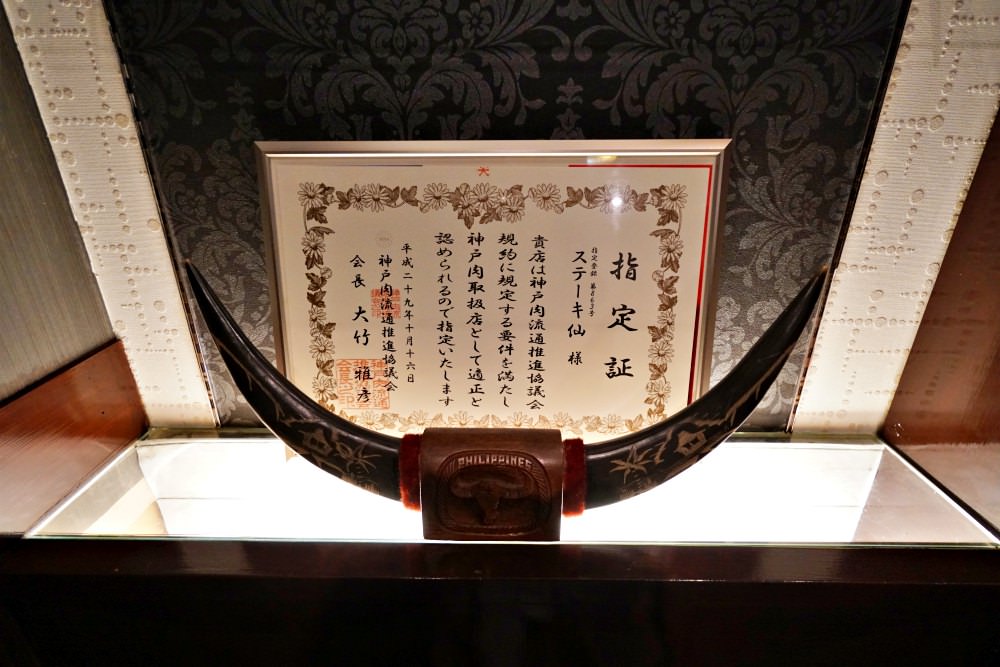 指定証
指定登録 第863号
ステーキ仙 様
貴店は神戸肉流通推進協議会
規約に規定する要件を満たし
神戸肉取扱店として適正と
認められるので指定いたします
平成二十九年十月十六日
神戸肉流通推進協議会
会長 大竹 雅彦
PHILIPPINES